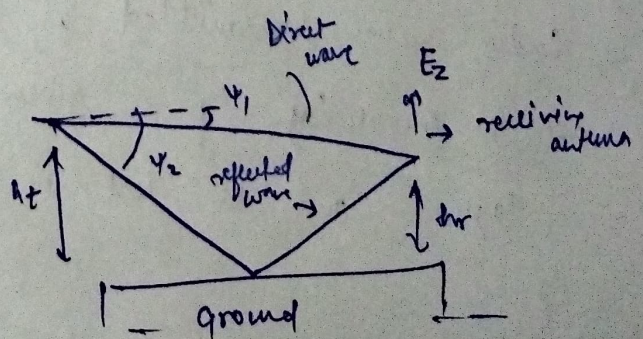 Direct
wave
E₂
ψ₁
→ receiving
antenna
ψ₂
reflected
wave →
ht
hr
Ground